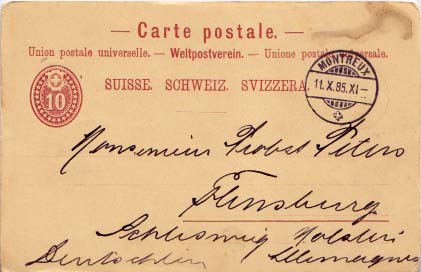 — Carte postale. —
Union postale universelle. — Weltpostverein. — Unione postale universale.
SUISSE. SCHWEIZ. SVIZZERA.
10
MONTREUX
11. X. 85. XI —
Probst Peters
Flensburg
Schleswig Holstein
Deutschland Allemagne